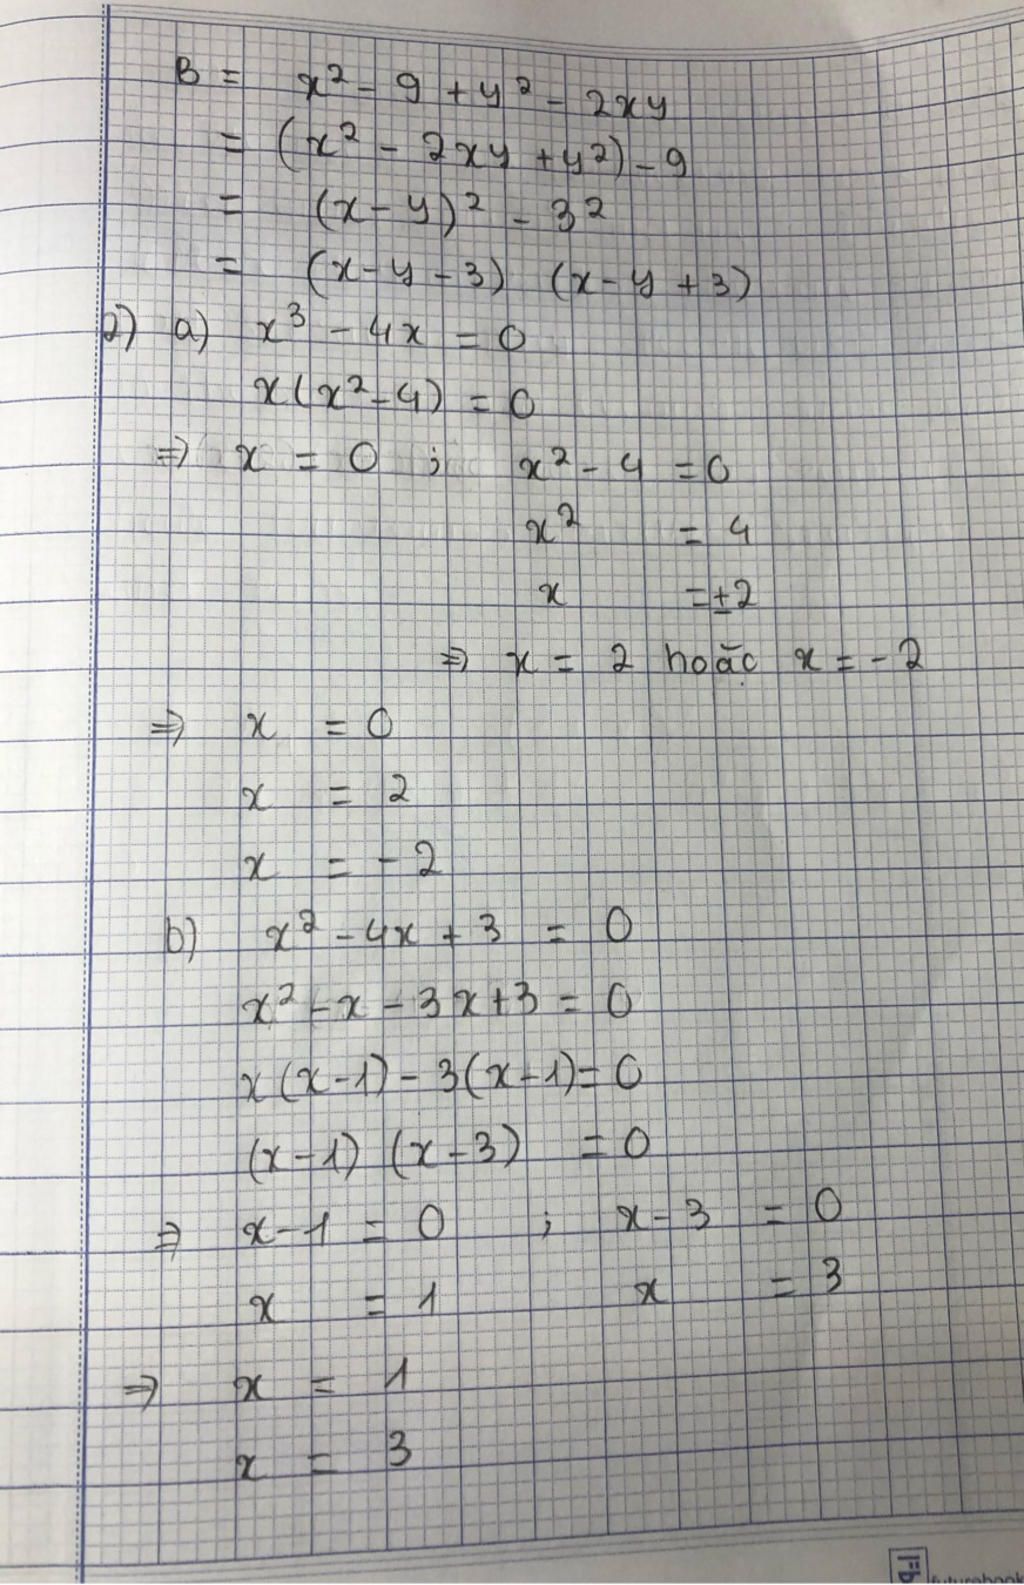 B = x² - 9 + y² - 2xy
= (x² - 2xy + y²) - 9
= (x - y)² - 3²
= (x - y - 3) (x - y + 3)
2) a) x³ - 4x = 0
x(x² - 4) = 0
⇒ x = 0 ; x² - 4 = 0
x² = 4
x = ±2
⇒ x = 2 hoặc x = -2
⇒ x = 0
x = 2
x = -2
b) x² - 4x + 3 = 0
x² - x - 3x + 3 = 0
x(x - 1) - 3(x - 1) = 0
(x - 1) (x - 3) = 0
⇒ x - 1 = 0 ; x - 3 = 0
x = 1 x = 3
⇒ x = 1
x = 3